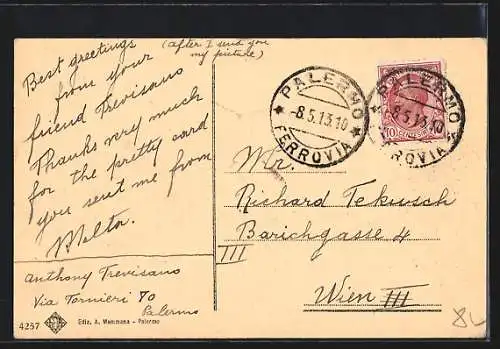 Best greetings
(after I send you
my picture)
from your
friend Trevisano
Thanks very much
for the pretty card
you sent me from
Anthony Trevisano
Via Tornieri 70
Palermo
4257
Ediz. A. - Palermo
PALERMO
-8.5.13.10
FERROVIA
PALERMO
-8.5.13.10
FERROVIA
10
Mr.
Richard Tekusch
Barichgasse 4
III
Wien III